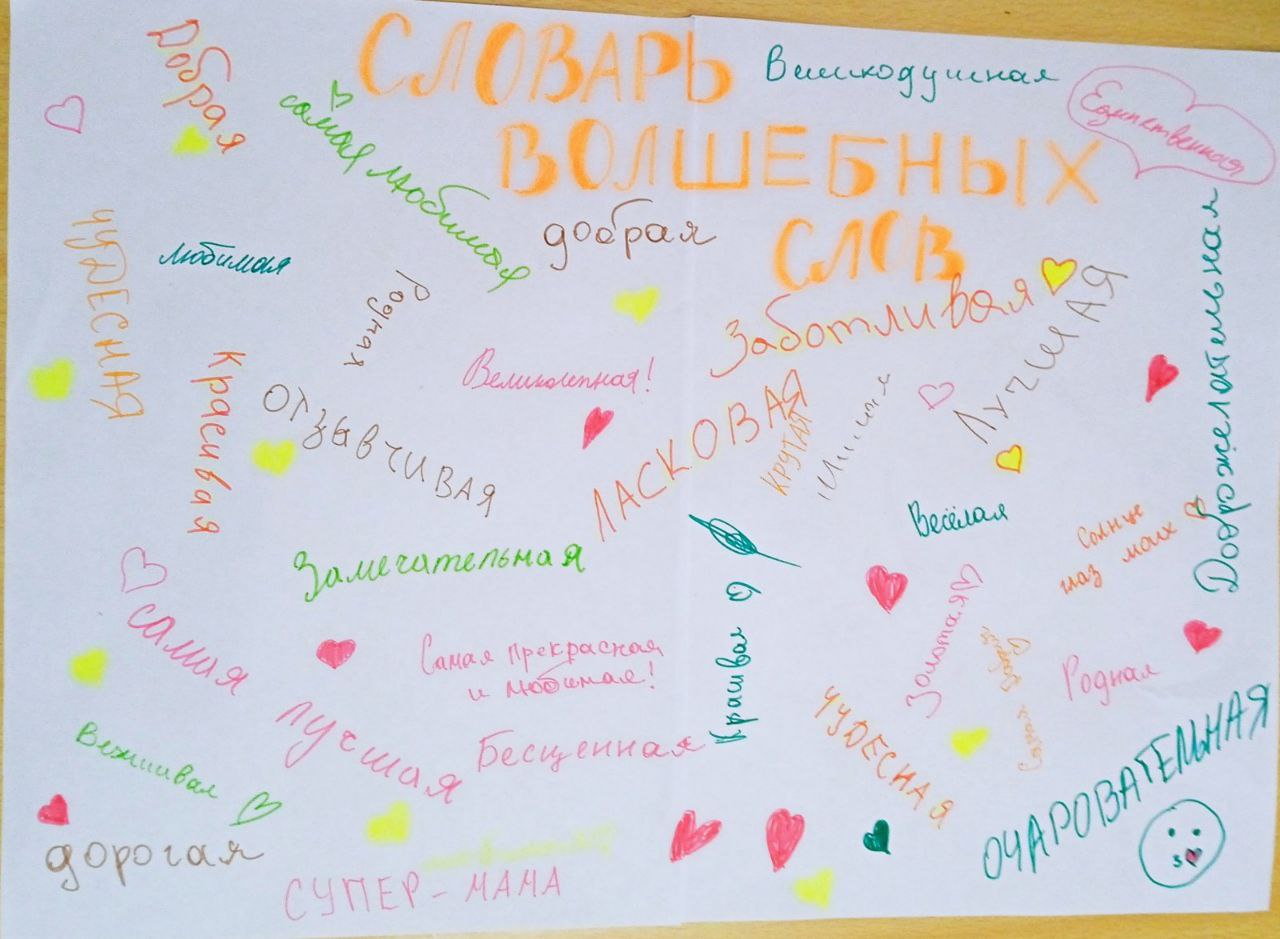 СЛОВАРЬ
ВОЛШЕБНЫХ
СЛОВ
Добрая
самая любимая
Великодушная
Единственная
чуДЕСНАЯ
любимая
добрая
Родная
Заботливая
Лучшая
Доброжелательная
Красивая
ОТзывчивАЯ
Великолепная!
ЛАСКОВАЯ
КРУТАЯ
Весёлая
Солнце
глаз моих
Замечательная
самая
лучшая
Самая прекрасная
и любимая!
Красивая
Золотая
Родная
Вежливая
Бесценная
ЧУДЕСНАЯ
ОЧАРОВАТЕЛЬНАЯ
дорогая
СУПЕР-МАМА